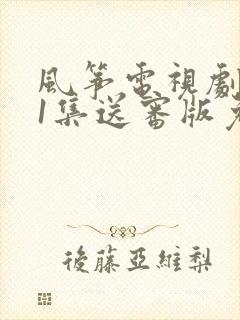 風箏電視劇
1集送審版免
後藤亞維梨